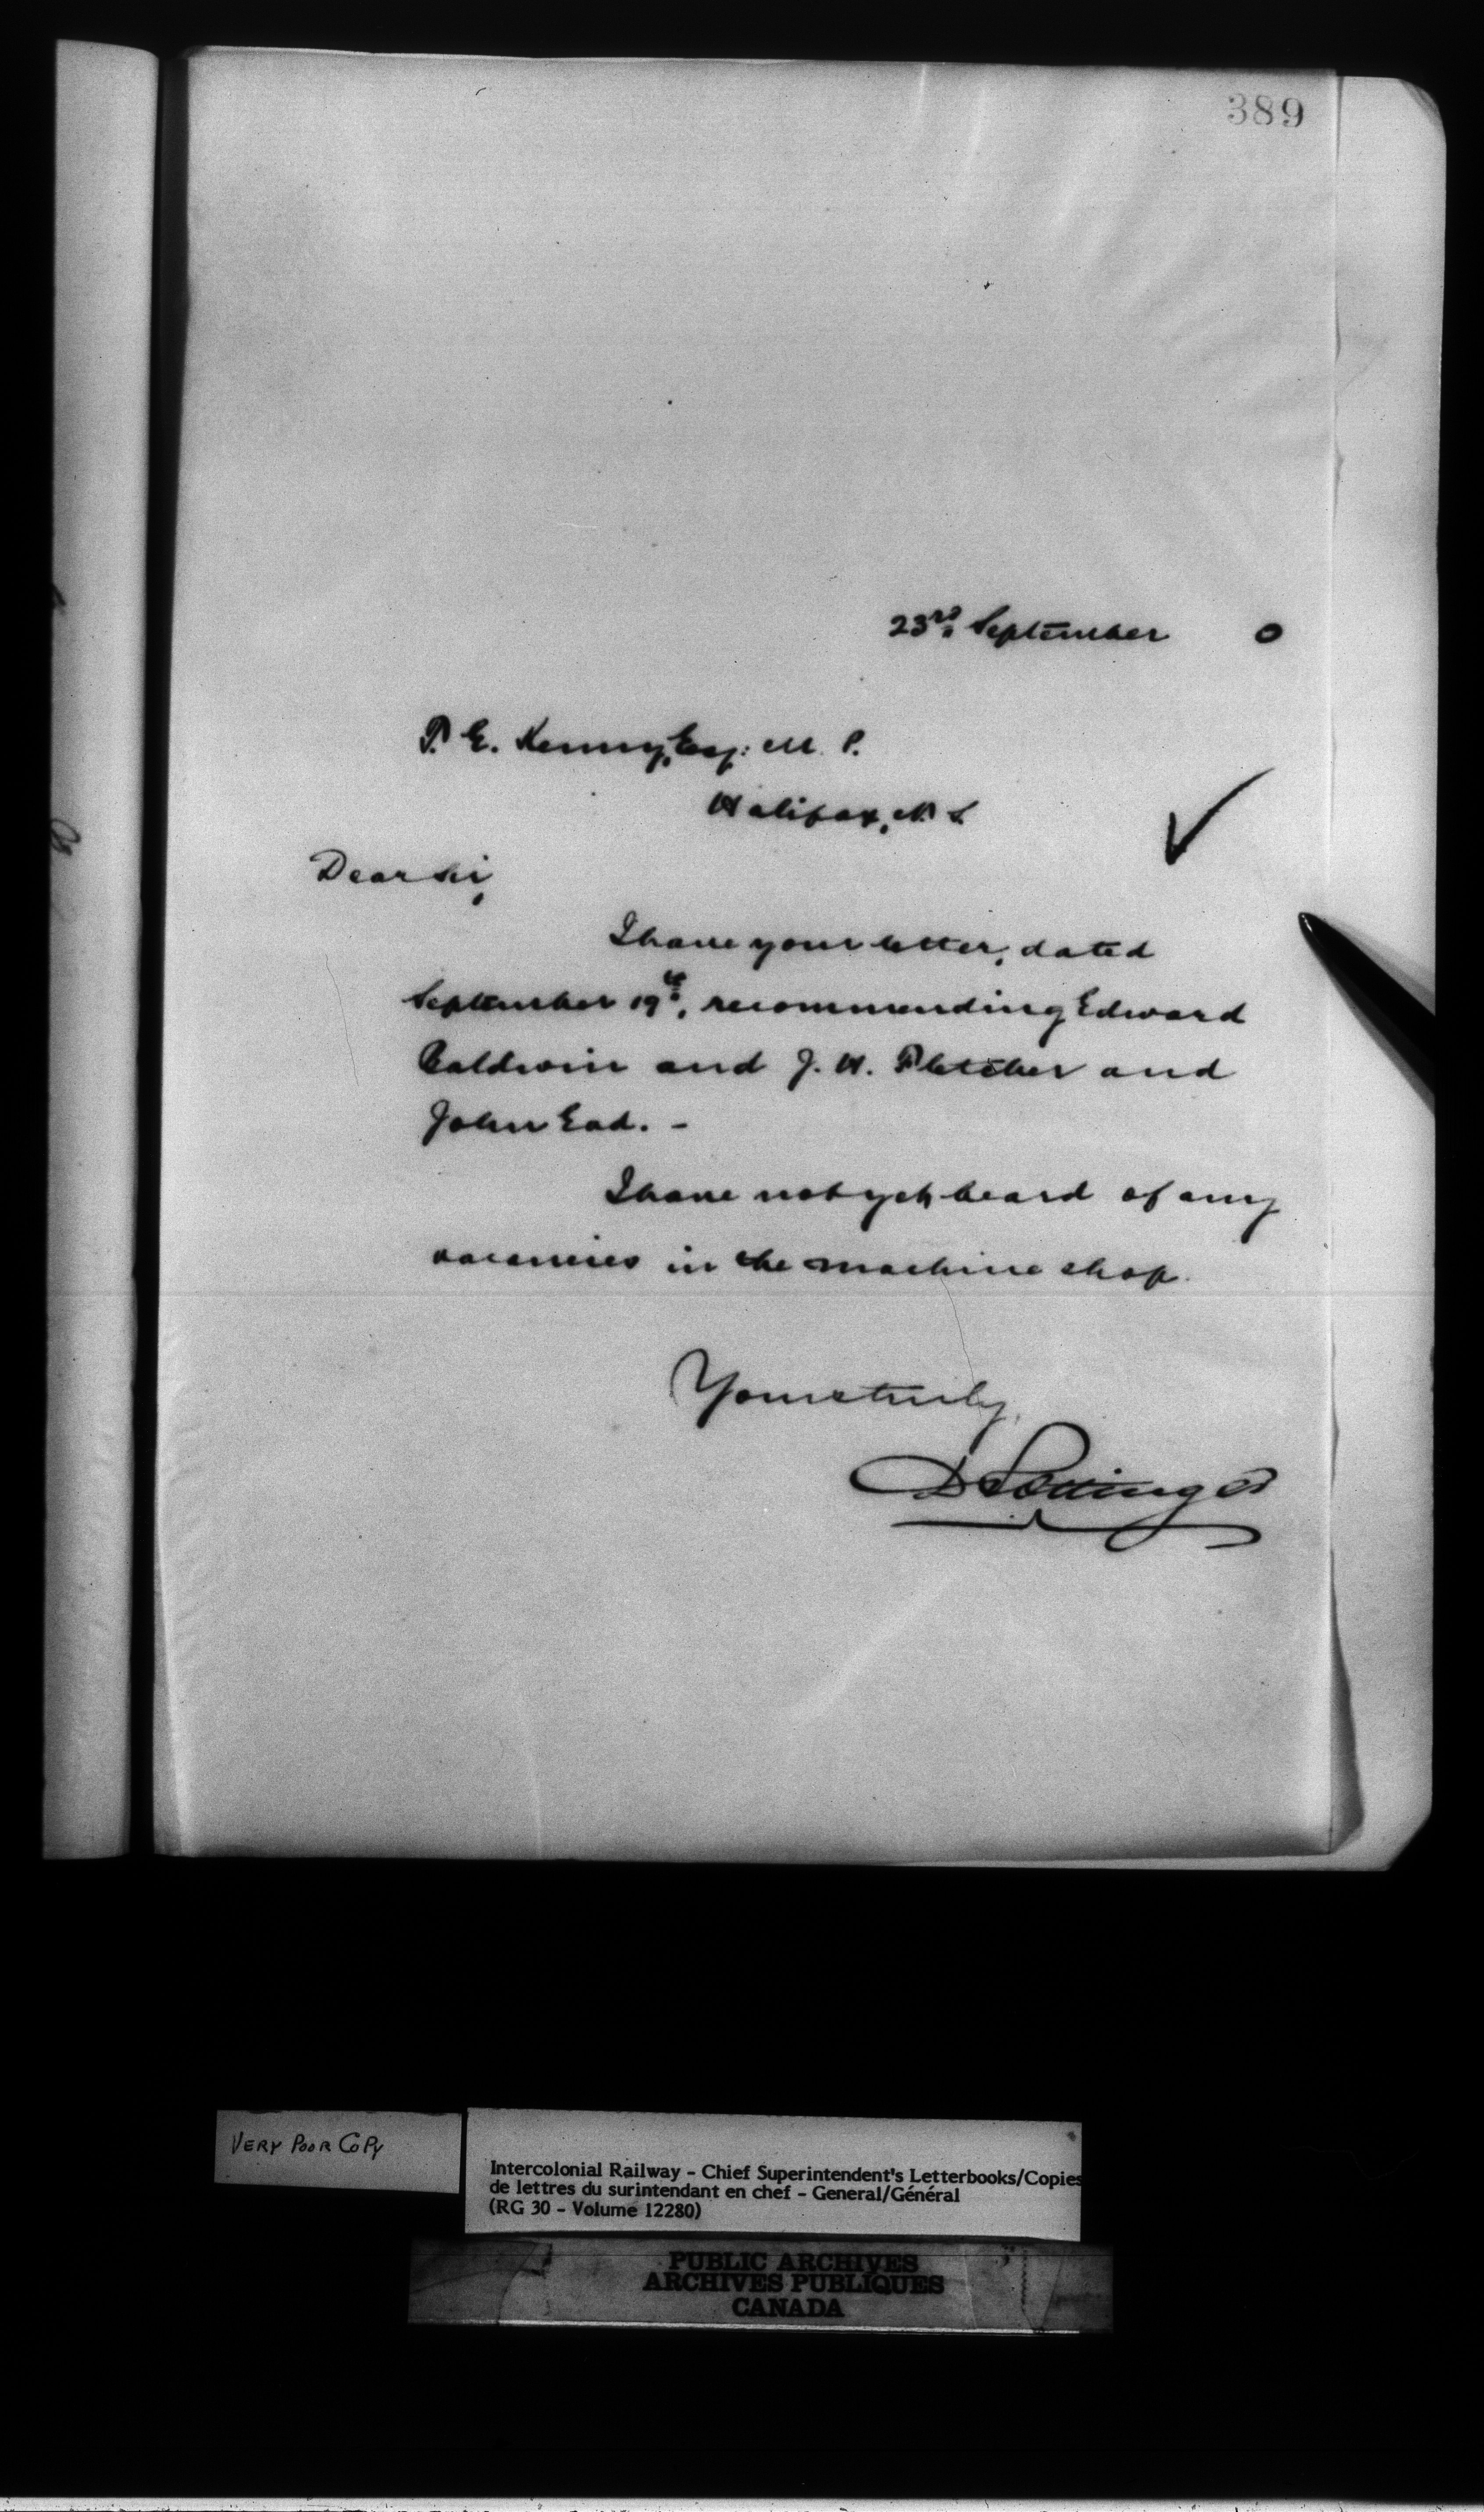 389
23rd September 0
T. E. Kenny, Esq: M. P.
Halifax, N. S.
Dear Sir,
I have your letter, dated
September 19th, recommending Edward
Baldwin and J. H. Fletcher and
John Ead. -
I have not yet heard of any
vacancies in the machine shop.
Yours truly,
D Pottinger
VERY POOR COPY
Intercolonial Railway - Chief Superintendent's Letterbooks/Copies
de lettres du surintendant en chef - General/Général
(RG 30 - Volume 12280)
PUBLIC ARCHIVES
ARCHIVES PUBLIQUES
CANADA